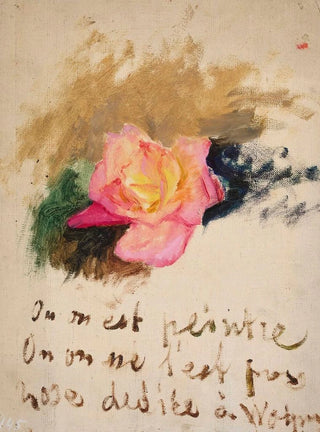 Ou on est peintre
Ou on ne l'est pas
Rose dediée à
145